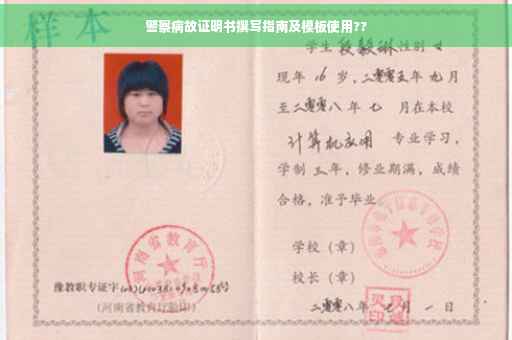 警察病故证明书撰写指南及模板使用??
样本
学生段毅琳性别 女
现年 16 岁，二零零五年 九 月
至二零零八 年 七 月在本校
计算机应用 专业学习，
学制 三 年，修业期满，成绩
合格，准予毕业
学校（章）
校长（章）
二零零八年 月 一 日
河南省教育厅
豫教职专证字
（河南省教育厅验印）